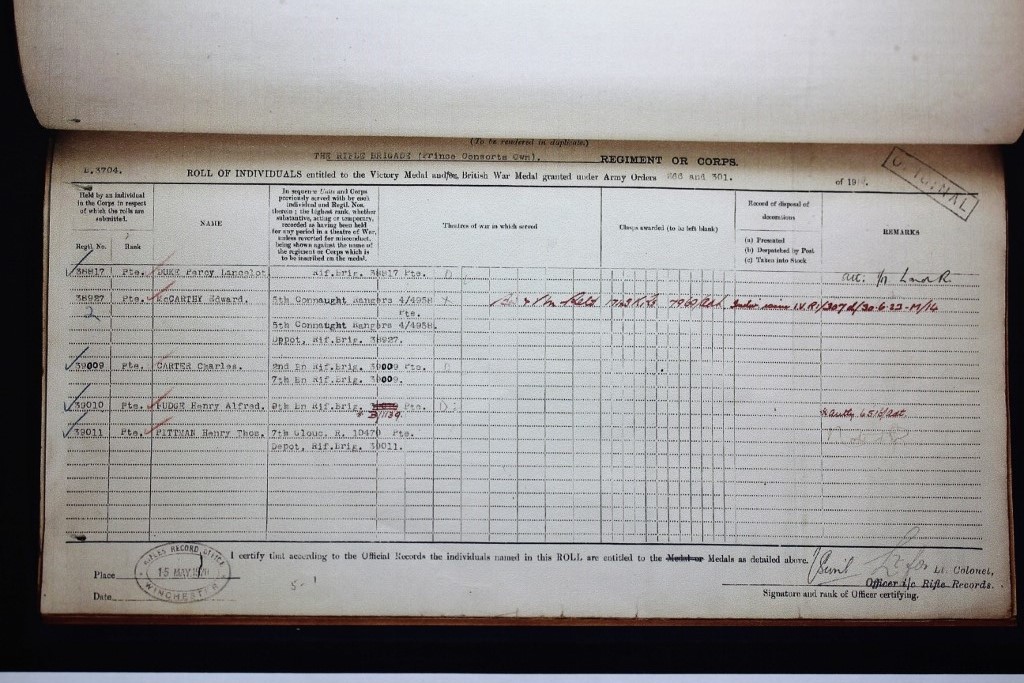 (To be rendered in duplicate)
THE RIFLE BRIGADE (Prince Consorts Own). REGIMENT OR CORPS.
E.3704. ROLL OF INDIVIDUALS entitled to the Victory Medal and/or British War Medal granted under Army Orders 266 and 301. of 1919.
ORIGINAL
Held by an individual in the Corps in respect of which the rolls are submitted.
Regtl. No. Rank
NAME
In sequence Units and Corps previously served with by each individual and Regtl. Nos. thereon; the highest rank, whether substantive, acting or temporary, recorded as having been held for any period in a theatre of War, unless reverted for misconduct, being shown against the name of the regiment or Corps which is to be inscribed on the medal.
Theatres of war in which served
Clasps awarded (to be left blank)
Record of disposal of decorations
(a) Presented
(b) Despatched by Post
(c) Taken into Stock
REMARKS
38817 Pte. DUKE Percy Lancelot Rif.Brig. 38817 Pte.
38927 Pte. McCARTHY Edward. 5th Connaught Rangers 4/4958 Pte. 1743 K.R. 7960/Adt I.V. 30-6-23
2 5th Connaught Rangers 4/4958.
Depot, Rif.Brig. 38927.
39009 Pte. CARTER Charles. 2nd Bn Rif.Brig. 39009 Pte.
7th Bn Rif.Brig. 39009.
39010 Pte. FUDGE Henry Alfred. 9th Bn Rif.Brig. Pte.
B/1139
39011 Pte. PITTMAN Henry Thos. 7th Glouc. R. 10470 Pte.
Depot, Rif.Brig. 39011.
I certify that according to the Official Records the individuals named in this ROLL are entitled to the Medal or Medals as detailed above.
Lt. Colonel,
Officer i/c Rifle Records.
Signature and rank of Officer certifying.
Place
Date
RIFLES RECORD OFFICE
15 MAY 1920
WINCHESTER